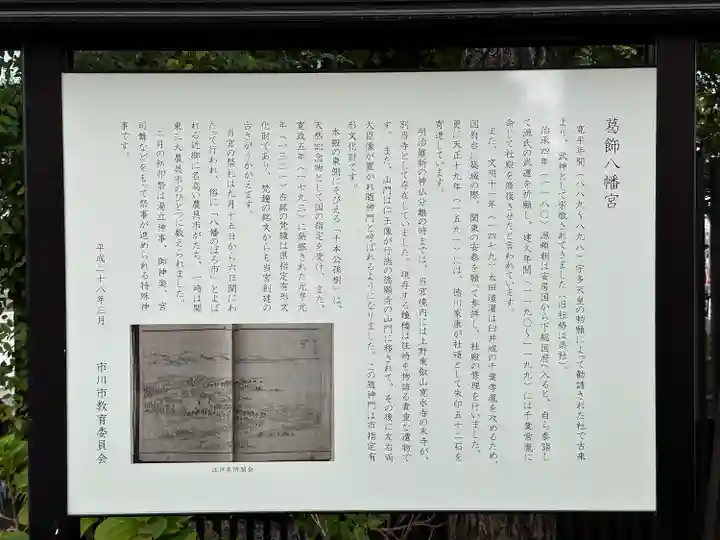 葛飾八幡宮
寛平年間(八八九〜八九八)宇多天皇の勅願によって勧請された社で古来
より、武神として崇敬されてきました(旧社格は県社)。
治承四年(一一八〇)源頼朝は安房国から下総国府へ入ると、自ら参詣し
て源氏の武運を祈願し、建久年間(一一九〇〜一一九九)には千葉常胤に
命じて社殿を修復させたと言われています。
また、文明十一年(一四七九)太田道灌は臼井城の千葉孝胤を攻めるため、
国府台に築城の際、関東の安泰を願って参拝し、社殿の修理を行いました。
更に天正十九年(一五九一)には、徳川家康が社領として朱印五十二石を
寄進しています。
明治維新の神仏分離の時までは、当宮境内には上野東叡山寛永寺の末寺が、
別当寺として存在していました。現存する鐘楼は往時を物語る貴重な遺物で
す。また、山門は仁王像が行徳の徳願寺の山門に移されて、その後に左右両
大臣像が置かれ随神門と呼ばれるようになりました。この随神門は市指定有
形文化財です。
本殿の東側にそびえる「千本公孫樹」は、
天然記念物として国の指定を受け、また、
寛政五年(一七九三)に発掘された元亨元
年(一三二一)在銘の梵鐘は県指定有形文
化財であり、梵鐘の銘文からも当宮創建の
古さがうかがえます。
当宮の祭礼は九月十五日から六日間にわ
たって行われ、俗に「八幡のぼろ市」とよば
れる近郷に名高い農具市がたち、一時は関
東三大農具市のひとつに数えられました。
二月の初卯祭は湯立神事、御神楽、宮
司舞などをもって祭事が進められる特殊神
事です。
平成二十八年三月
市川市教育委員会
江戸名所図会